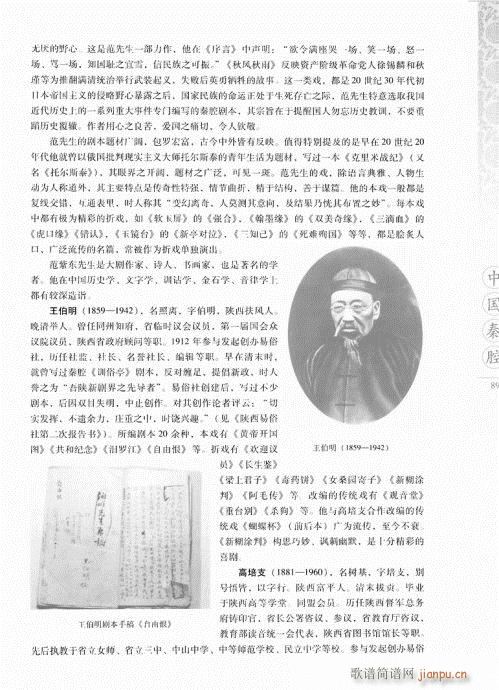 无厌的野心。这是范先生一部力作，他在《序言》中声明：“欲令满座哭一场、笑一场、怒一
场、骂一场，知国耻之宜雪，信民族之可振。”《秋风秋雨》反映资产阶级革命党人徐锡麟和秋
瑾等为推翻满清统治举行武装起义，失败后英勇牺牲的故事。这一类戏，都是20世纪30年代初
日本帝国主义的侵略野心暴露之后，国家民族的命运正处于生死存亡之际，范先生特意选取我国
近代历史上的一系列重大事件专门编写的秦腔剧本，其宗旨在于提醒国人勿忘历史教训，不要重
蹈历史覆辙。作者用心之良苦，爱国之痛切，令人钦敬。
范先生的剧本题材广阔，包罗宏富，古今中外皆有反映。值得特别提及的是早在20世纪20
年代他就曾以俄国批判现实主义大师托尔斯泰的青年生活为题材，写过一本《克里米战纪》（又
名《托尔斯泰》），其眼界之开阔，题材之广泛，可见一斑。范先生的戏，除语言典雅、人物生
动为人称道外，其主要特点是传奇性特强，情节曲折，精于结构，善于谋篇。他的本戏一般都是
复线交错，互通表里，时人称其“变幻离奇，人莫测其意向，及结果乃恍其布置之妙”。每本戏
中都有极为精彩的折戏，如《软玉屏》的《强合》，《翰墨缘》的《双美奇缘》，《三滴血》的
《虎口缘》《错认》，《玉镜台》的《新亭对泣》，《三知己》的《死难殉国》等等，都是脍炙人
口，广泛流传的名篇，常被作为折戏单独演出。
范紫东先生是大剧作家、诗人、书画家，也是著名的学
者。他在中国历史学、文字学、训诂学、金石学、音律学上
都有较深造诣。
王伯明（1859—1942），名照离，字伯明，陕西扶风人。
晚清举人。曾任同州知府，省临时议会议员，第一届国会众
议院议员，陕西省政府顾问等职。1912年参与发起创办易俗
社，历任社监、社长、名誉社长、编辑等职。早在清末时，
就曾写过秦腔《训俗亭》剧本，反对缠足，提倡新政，时人
誉之为“吾陕新剧界之先导者”。易俗社创建后，写过不少
剧本，后因双目失明，中止创作。对其创作论者评云：“切
实发挥，不遗余力，庄重之中，时饶兴趣。”（见《陕西易俗
社第二次报告书》）。所编剧本20余种，本戏有《黄帝开国
图》《共和纪念》《汨罗江》《自由恨》等。折戏有《欢迎议
员》《长生鉴》
《梁上君子》《毒药饼》《女桑园寄子》《新糊涂
判》《阿毛传》等。改编的传统戏有《观音堂》
《重台别》《杀狗》等。他与高培支合作改编的传
统戏《蝴蝶杯》（前后本）广为流传，至今不衰。
《新糊涂判》构思巧妙、讽刺幽默，是十分精彩的
喜剧。
高培支（1881—1960），名树基，字培支，别
号悟皆，以字行。陕西富平人。清末拔贡。毕业
于陕西高等学堂。同盟会员。历任陕西督军总务
府铸印官，省长公署咨议、参议，省教育厅咨议，
教育部读音统一会代表，陕西省图书馆馆长等职。
先后执教于省立女师、省立三中、中山中学、中等师范学校、民立中学等校。参与发起创办易俗
王伯明（1859—1942）
王伯明剧本手稿《自由恨》
中国秦腔
89
歌谱简谱网
jianpu.cn